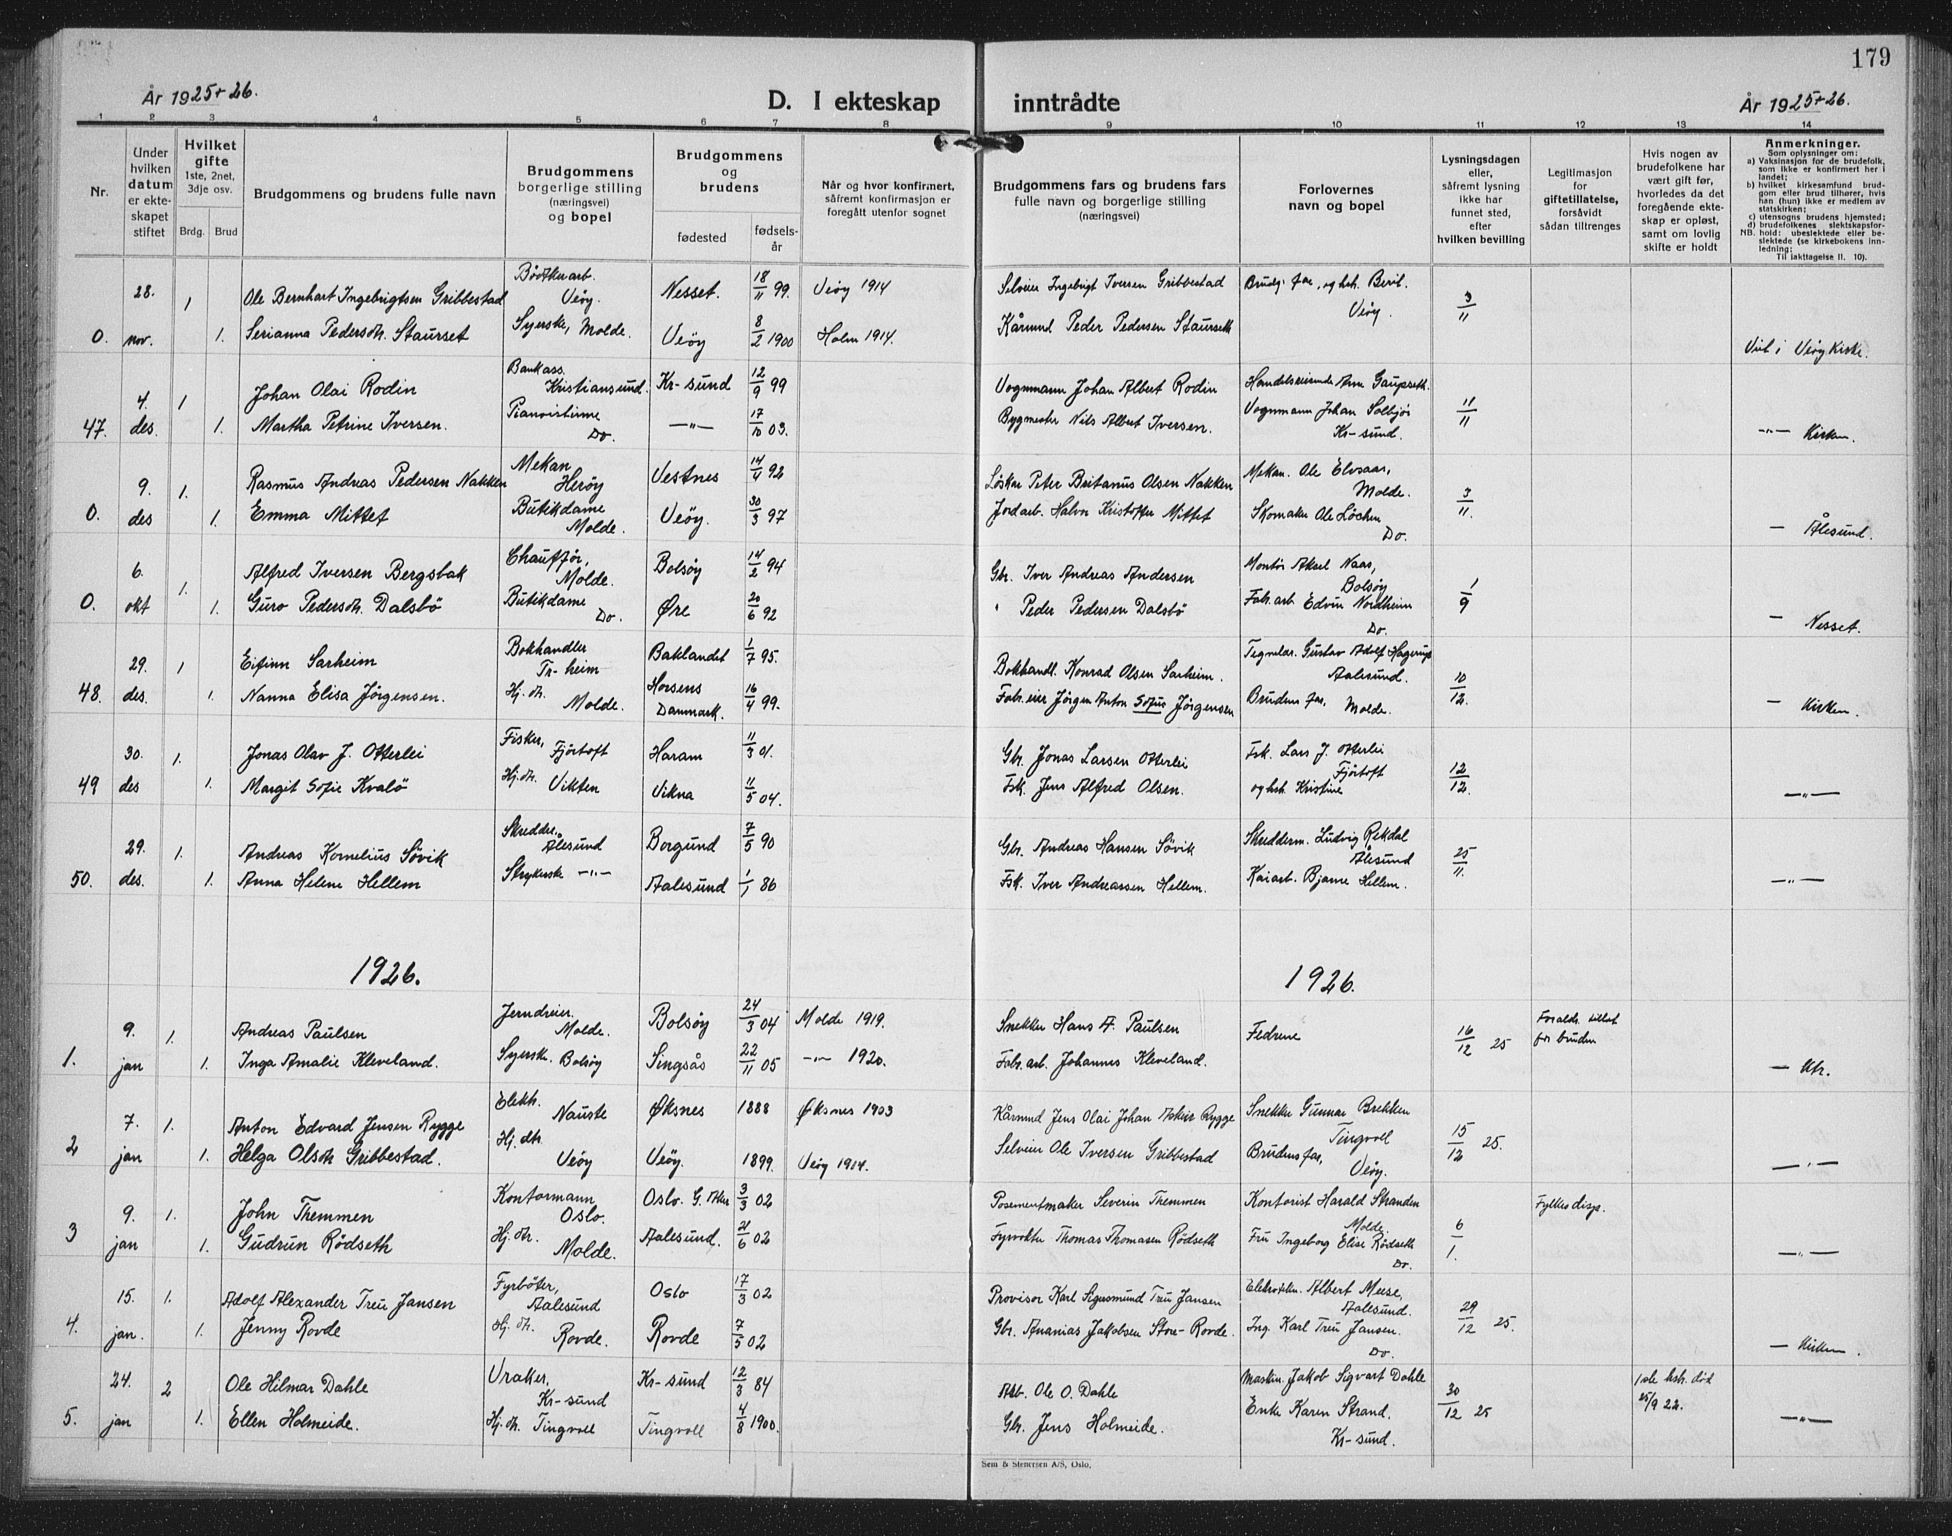 179
År 1925+26.
D. I ekteskap inntrådte
År 1925+26.
1 2 3 4 5 6 7 8 9 10 11 12 13 14
Nr.
Under hvilken datum er ekteskapet stiftet
Hvilket gifte 1ste, 2net, 3dje osv.
Brdg. Brud
Brudgommens og brudens fulle navn
Brudgommens borgerlige stilling (næringsvei) og bopel
Brudgommens og brudens
fødested
fødselsår
Når og hvor konfirmert, såfremt konfirmasjon er foregått utenfor sognet
Brudgommens fars og brudens fars fulle navn og borgerlige stilling (næringsvei)
Forlovernes navn og bopel
Lysningsdagen eller, såfremt lysning ikke har funnet sted, efter hvilken bevilling
Legitimasjon for giftetillatelse, forsåvidt sådan tiltrenges
Hvis nogen av brudefolkene har vært gift før, hvorledes da det foregående ekteskap er opløst, samt om lovlig skifte er holdt
Anmerkninger.
Som oplysninger om:
a) Vaksinasjon for de brudefolk, som ikke er konfirmert her i landet;
b) hvilket kirkesamfund brudgom eller brud tilhører, hvis han (hun) ikke er medlem av statskirken;
c) utensogns brudens hjemsted;
d) brudefolkenes slektskapsforhold: ubeslektede eller beslektede (se kirkebokens innledning;
NB.
Til iakttagelse II. 10).
28. 1 Ole Bernhart Ingebrigtsen Gribbestad Bødkerarb. Veøy. Nesset. 18/11 99. Veøy 1914 Selveier Ingebrigt Iversen Gribbestad Brudg. far, og hst. Berit. Veøy. 3/11
0. nov. 1. Serianna Pedersdtr. Staurset Syerske, Molde. Veøy 8/2 1900 Holm 1914. Kårmand Peder Pedersen Staurseth Viet i Veøy Kirke.
4. 1 Johan Olai Rodin Bankass. Kristiansund. Kr-sund 12/9 99 Vognmann Johan Albert Rodin Handelsreisende Arne Gaupseth. 11/11
47. des. 1. Martha Petrine Iversen. Pianistinne Do. —"— 17/10 03. Bygmester Nils Albert Iversen. Vognmann Johan Solbjør Kr-sund. —"— Kirken.
9. 1. Rasmus Andreas Pedersen Nakken Mekan Herøy Vestnes 14/4 92 Løskar Peter Britanus Olsen Nakken Mekan. Ole Elvsaas, Molde. 3/11.
0. des 1. Emma Mittet Butikdame Molde. Veøy. 30/3 97 Jordarb. Halvor Kristoffer Mittet Skomaker Ole Løchen Do. — Ålesund.
6. 1. Alfred Iversen Bergsbak Chauffør, Molde. Bolsøy 14/2 94 Gbr. Iver Andreas Andersen Montør Aksel Naas, Bolsøy 1/9
0. okt 1. Guro Pedersdtr. Dalsbö Butikdame Do. Øre 20/6 92 " Peder Pedersen Dalsbö Fabr.arb. Edvin Nordheim Do. — Nesset.
29. 1 Eifinn Sarheim Bokhandler Tr-heim Baklandet 1/7 95. Bokhandl. Konrad Olsen Sarheim. Tegnelær. Gustav Adolf Hagerup Aalesund. 10/12.
48. des. 1. Nanna Elisa Jörgensen. Hj. dtr. Molde. Horsens Danmark. 16/4 99. Fabr.eier Jörgen Anton Sofus Jörgensen Brudens far, Molde. — Kirken.
30. 1. Jonas Olav J. Otterlei Fisker, Fjörtoft Haram 11/3 01. Gbr. Jonas Larsen Otterlei Fsk. Lars J. Otterlei Fjörtoft 12/12.
49 des 1. Margit Sofie Kvalö Hj. dtr. Vikten Vikna 11/5 04. Fsk. Jens Alfred Olsen. og hst. Kristine —"—
29. 1. Andreas Kornelius Sövik Skredder, Ålesund Borgund 7/5 90 Gbr. Andreas Hansen Sövik Skredderm. Ludvig Rekdal Ålesund 25/11.
50. des. 1. Anna Helene Hellem Strykerske —"— Aalesund 1/1 86 Fsk. Iver Andreassen Hellem. Kaiarb. Bjarne Hellem. —"—
1926. 1926.
9. 1. Andreas Paulsen Jerndreier. Molde. Bolsöy 24/3 04 Molde 1919. Snekker Hans A. Paulsen Fedrene 16/12 25 Foreldr. tillat for bruden
1. jan 1. Inga Amalie Kleveland. Syersk. Bolsöy Singsås 22/11 05 —"— 1920. Fabr. arb. Johannes Kleveland. — Ktr.
7. 1. Anton Edvard Jensen Rygge Elektr. Nauste Øksnes 1888 Øksnes 1903 Kårmand Jens Olai Johan Rygge Snekker Gunnar Brekken Tingvoll 15/12 25.
2 jan 1. Helga Olsdtr Gribbestad. Hj. dtr Veöy Veöy. 1899. Veöy 1914. Selveier Ole Iversen Gribbestad Brudens far, Veöy. —"—
9. 1. John Themmen Kontormann Oslo. Oslo. G. Aker 3/3 02 Posementmaker Severin Themmen Kontorist Harald Stranden Molde. 6/1. Fylkesdisp.
3 jan 1. Gudrun Rödseth Hj. dtr. Molde. Aalesund. 21/6 02 Fyrvokter Thomas Thomasen Rödseth Fru Ingeborg Elise Rödseth Do. —"—
15. 1. Adolf Alexander Treu Jansen Fyrböter, Aalesund Oslo 17/3 02 Provisor Karl Sigusmund Treu Jansen Elektrikr. Albert Meese, Aalesund. 29/12 25.
4. jan. 1. Jenny Rovde Hj. dtr. Rovde. Rovde 7/5 02 Gbr. Ananias Jakobsen Store-Rovde. Ing. Karl Treu Jansen. Do. — Kirken.
24. 2 Ole Hilmar Dahle Vraker, Kr-sund Kr-sund 12/3 84 Arb. Ole O. Dahle Maskin. Jakob Sigvart Dahle 30/12 25 1ste hst. död 25/9 22.
5. jan 1. Ellen Holmeide. Hj. dtr. Tingvoll Tingvoll 4/8 1900. Gbr. Jens Holmeide. Enke Karen Strand. Kr-sund. —"—
Sem & Stenersen A/S, Oslo.